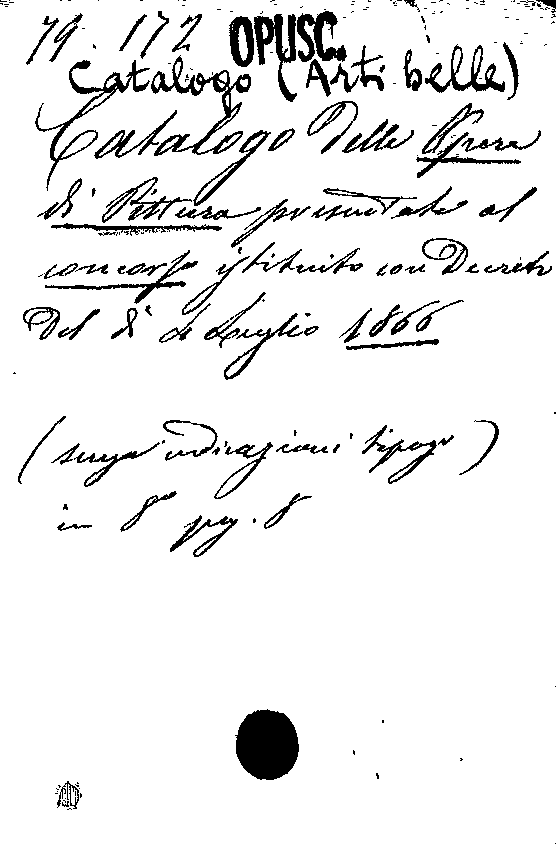 79.172 OPUSC.
Catalogo (Arti belle)
Catalogo delle Opere
di Pittura presentate al
concorso istituito con Decreto
del dì Luglio 1866
(senza indicazioni tipogr)
in 8° pag. 8